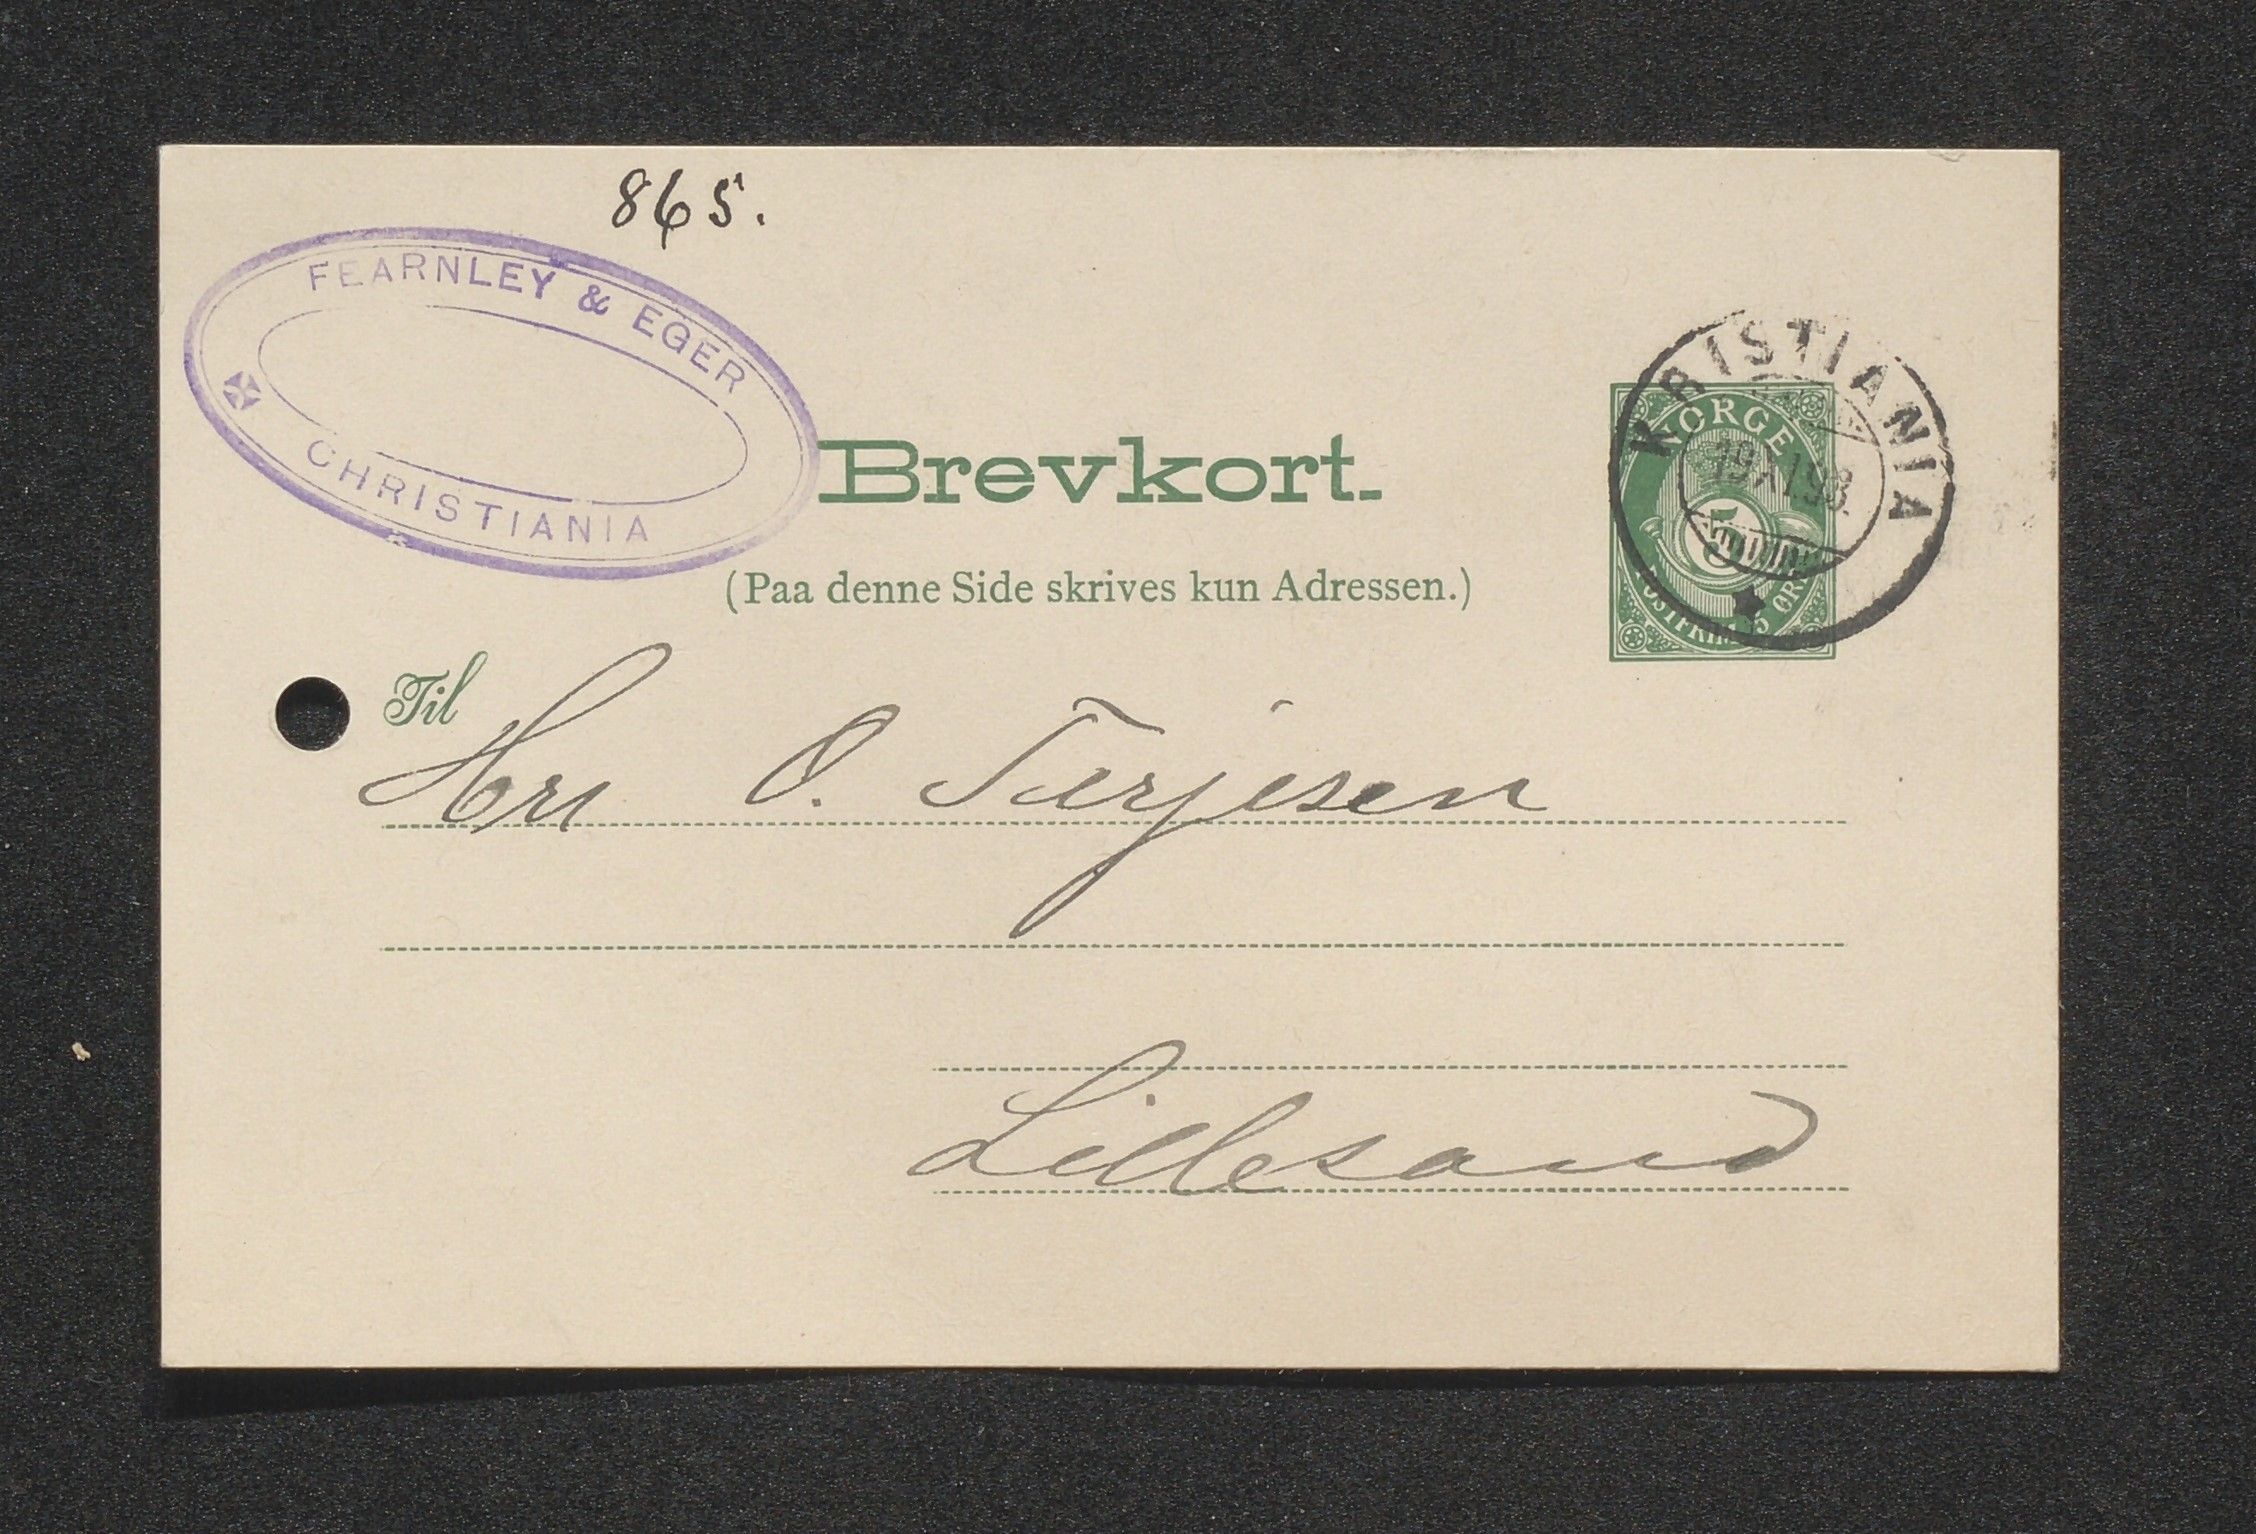 865.
FEARNLEY & EGER
CHRISTIANIA
KRISTIANIA
19 XI 98
NORGE
5
POSTFRIM. 5 ØRE
Brevkort.
(Paa denne Side skrives kun Adressen.)
Til
Hrr O. Terjesen
Lillesand